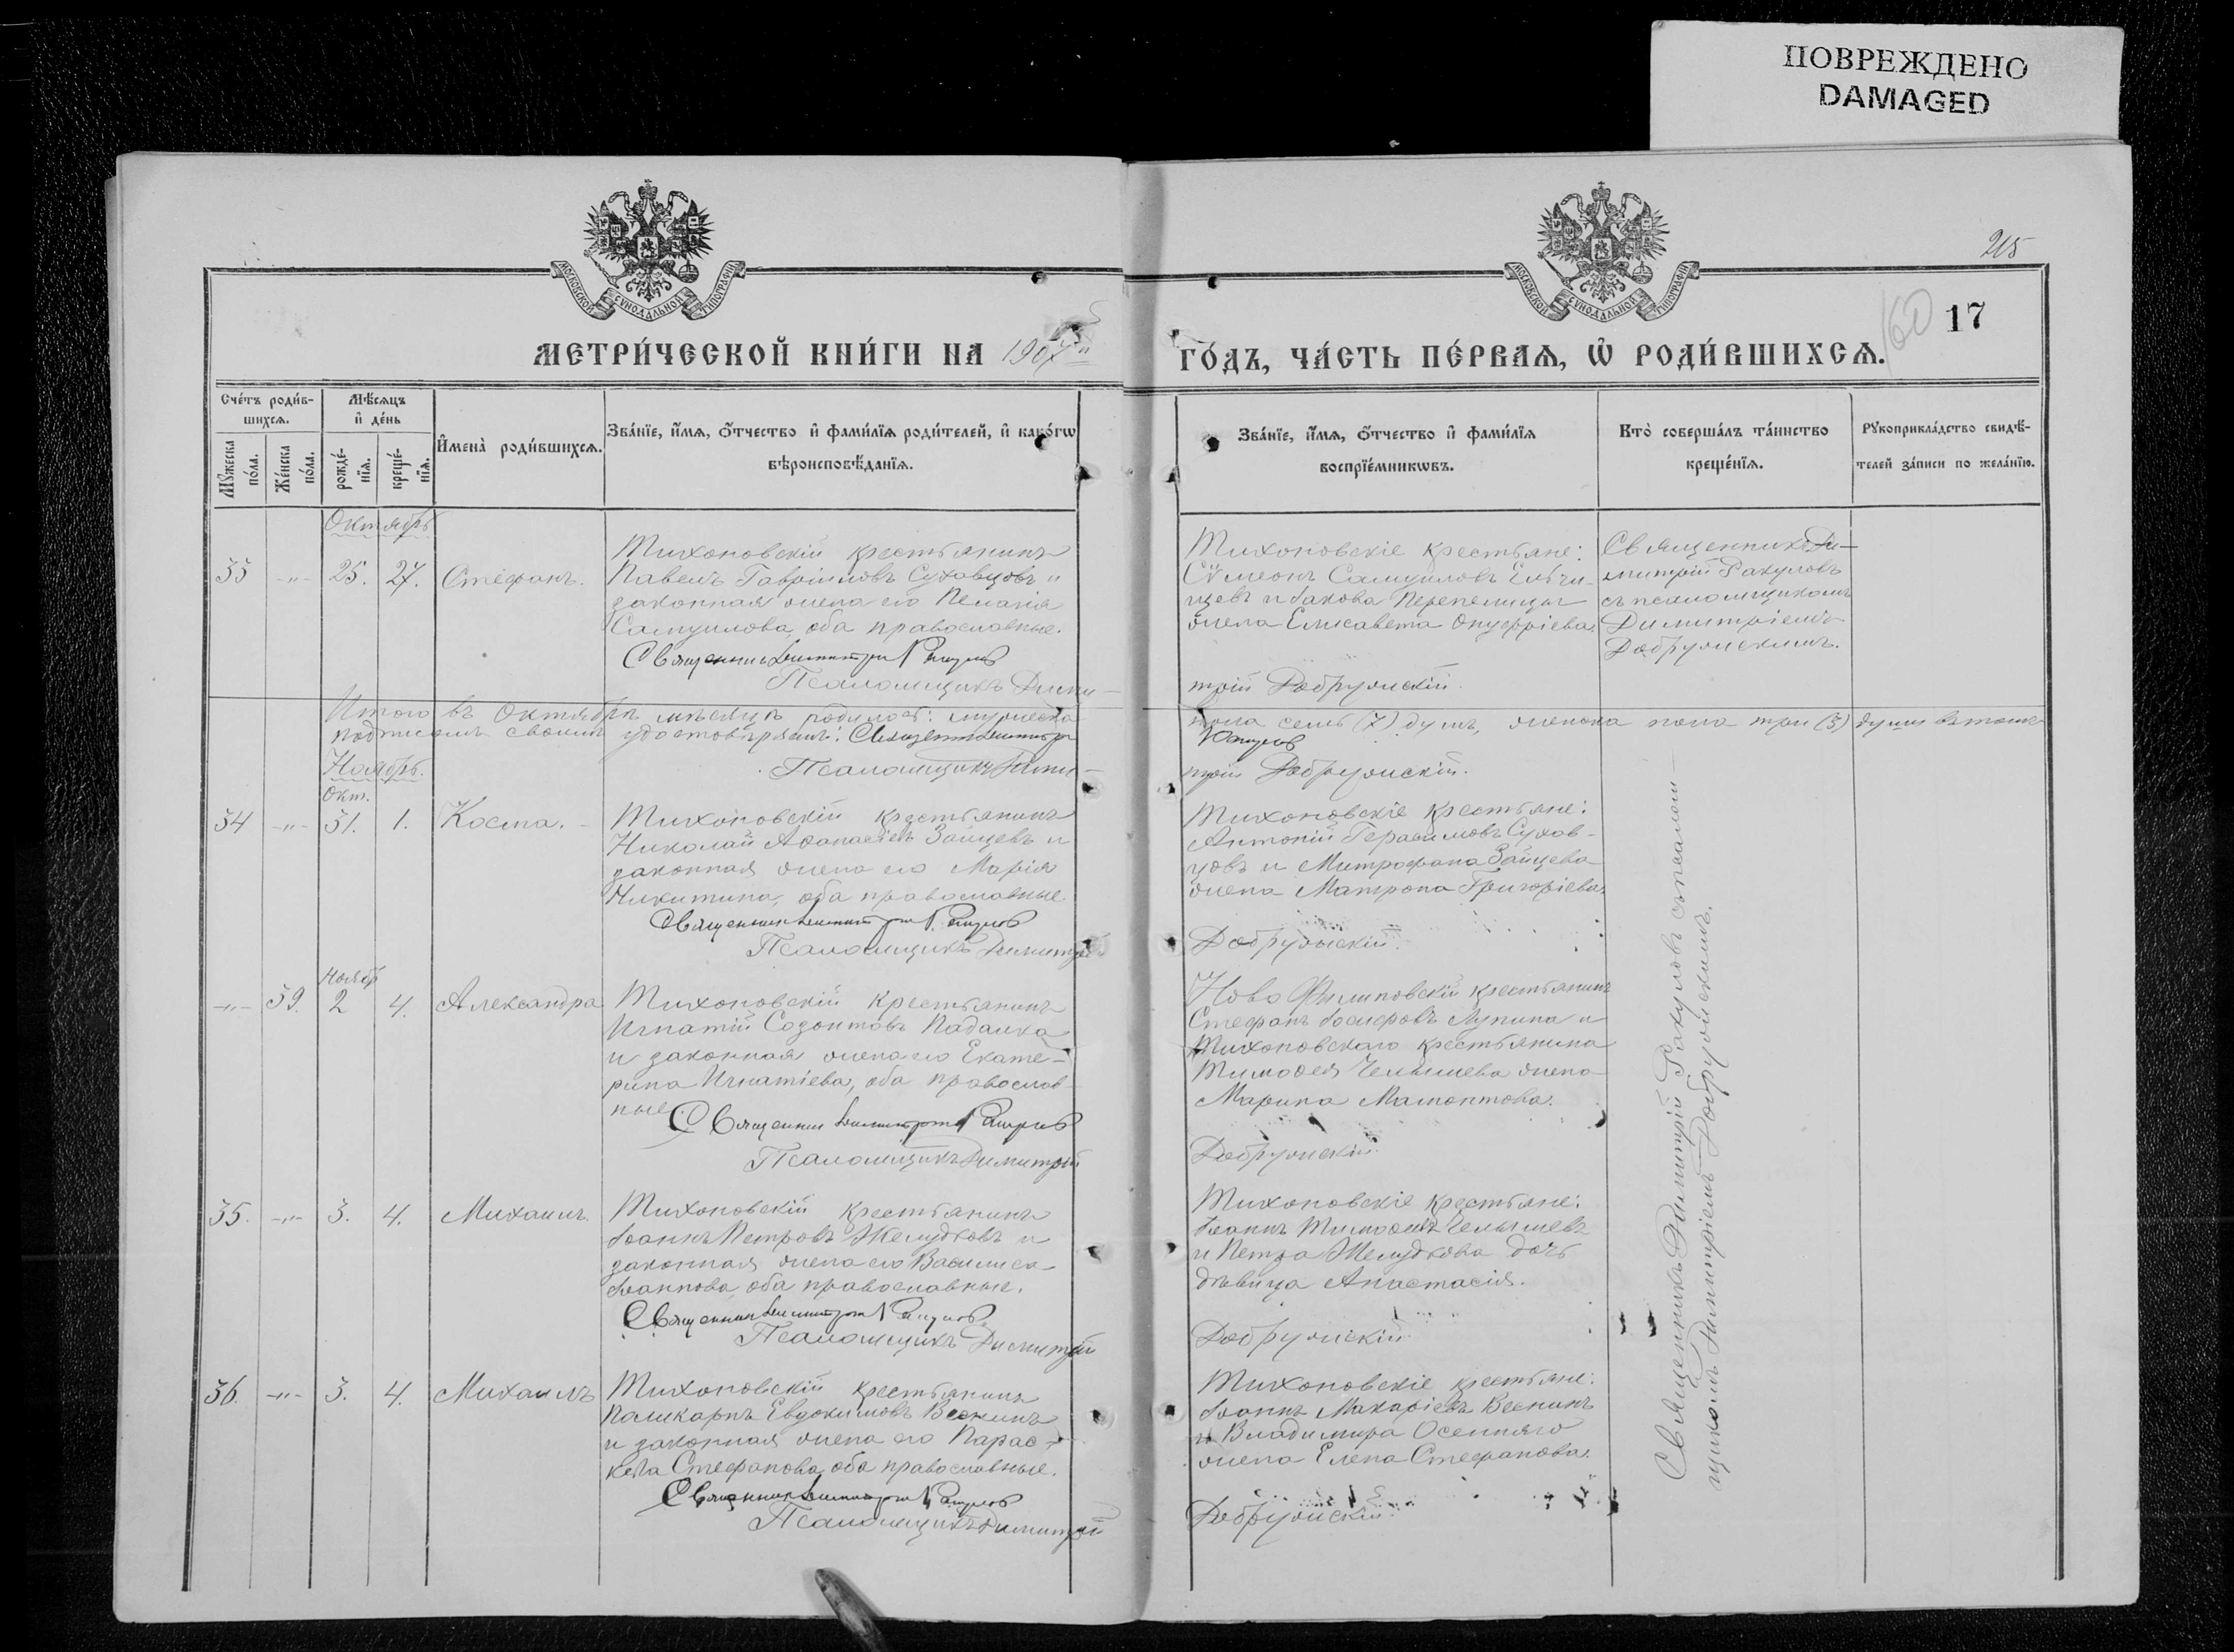 ПОВРЕЖДЕНО
DAMAGED
МОСКОВСКОЙ СѴНОДАЛЬНОЙ ТИПОГРАФІИ
МОСКОВСКОЙ СѴНОДАЛЬНОЙ ТИПОГРАФІИ
215
160
17
МЕТРИ́ЧЕСКОЙ КНИ́ГИ НА 1907
ГО́ДЪ, ЧА́СТЬ ПЕ́РВАѦ, Ѡ҆ РОДИ́ВШИХСѦ.
Сче́тъ роди́в-
шихсѧ.
Мꙋжеска по́ла.
Же́нска по́ла.
Мѣ́сѧцъ
и҆ де́нь
рожде́-
нїѧ.
креще́-
нїѧ.
И҆мена̀ роди́вшихсѧ.
Зва́нїе, и҆́мѧ, ѻ҆́тчество и҆ фами́лїѧ роди́телей, и҆ како́гѡ
вѣроисповѣ́данїѧ.
Зва́нїе, и҆́мѧ, ѻ҆́тчество и҆ фами́лїѧ
воспрїе́мникѡвъ.
Кто̀ соверша́лъ та́инство
креще́нїѧ.
Рꙋкоприкла́дство свидѣ́-
телей за́писи по жела́нїю.
Октябрь
33 -"- 25. 27. Стефанъ.
Тихоновскій крестьянинъ
Павелъ Гавріиловъ Суховцовъ и
законная жена его Пелагія
Самуилова, оба православные.
Священникъ Димитрій Ракуловъ
Псаломщикъ Дими-
Тихоновскіе крестьяне:
Сѵмеонъ Самуиловъ
и Іакова Перепелицы
жена Елисавета Онуфріева.
трій Добружскій.
Священникъ Ди-
митрій Ракуловъ
съ псаломщикомъ
Димитріемъ
Добружскимъ.
Итого въ Октябрѣ мѣсяцѣ родилось: мужеска
пола семь (7) душъ, женска пола три (3) души въ томъ
подписомъ своимъ удостовѣряемъ: Священникъ Димитрій
Ракуловъ
Псаломщикъ Дими-
трій Добружскій.
Ноябрь.
Окт.
34 -"- 31. 1. Косма.
Тихоновскій крестьянинъ
Николай Аѳанасіевъ Зайцевъ и
законная жена его Марія
Никитина, оба православные.
Священникъ Димитрій Ракуловъ
Псаломщикъ Димитрій
Тихоновскіе крестьяне:
Антоній Герасимовъ Сухов-
цовъ и Митрофана Зайцева
жена Матрона Григоріева.
Добружскій.
Ноябр.
-"- 39. 2 4. Александра
Тихоновскій крестьянинъ
Игнатій Созонтовъ Падалка
и законная жена его Екате-
рина Игнатіева, оба православ-
ные.
Священникъ Димитрій Ракуловъ
Псаломщикъ Димитрій
Ново Филиповскій крестьянинъ
Стефанъ Іосифовъ Лупина и
Тихоновскаго крестьянина
Тимоѳея Челышева жена
Марина Мамонтова.
Добружскій.
35. -"- 3. 4. Михаилъ.
Тихоновскій крестьянинъ
Іоаннъ Петровъ Желудковъ и
законная жена его Василиса
Іоаннова, оба православные.
Священникъ Димитрій Ракуловъ
Псаломщикъ Димитрій
Тихоновскіе крестьяне:
Іоаннъ Тимоѳеевъ Челышевъ
и Петра Желудкова дочь
дѣвица Анастасія.
Добружскій
36. -"- 3. 4. Михаилъ
Тихоновскій крестьянинъ
Поликарпъ Евдокимовъ Веснинъ
и законная жена его Парас-
кева Стефанова, оба православные.
Священникъ Димитрій Ракуловъ
Псаломщикъ Димитрій
Тихоновскіе крестьяне:
Іоаннъ Макаріевъ Веснинъ
и Владимира Осенняго
жена Елена Стефанова.
Добружскій.
Священникъ Димитрій Ракуловъ съ псалом-
щикомъ Димитріемъ Добружскимъ.